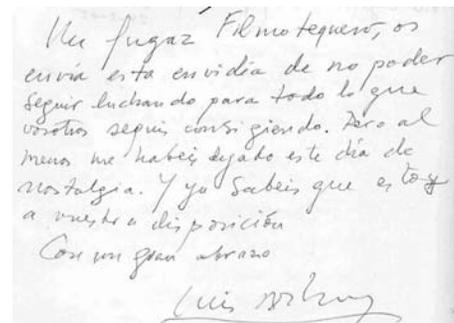 Un fugaz Filmotequero, os
envía esta envidia de no poder
seguir luchando para todo lo que
vosotros seguis consigiendo. Pero al
menos me habeis dejado este día de
nostalgia. Y ya sabeis que estoy
a vuestra disposición
Con un gran abrazo
Luis